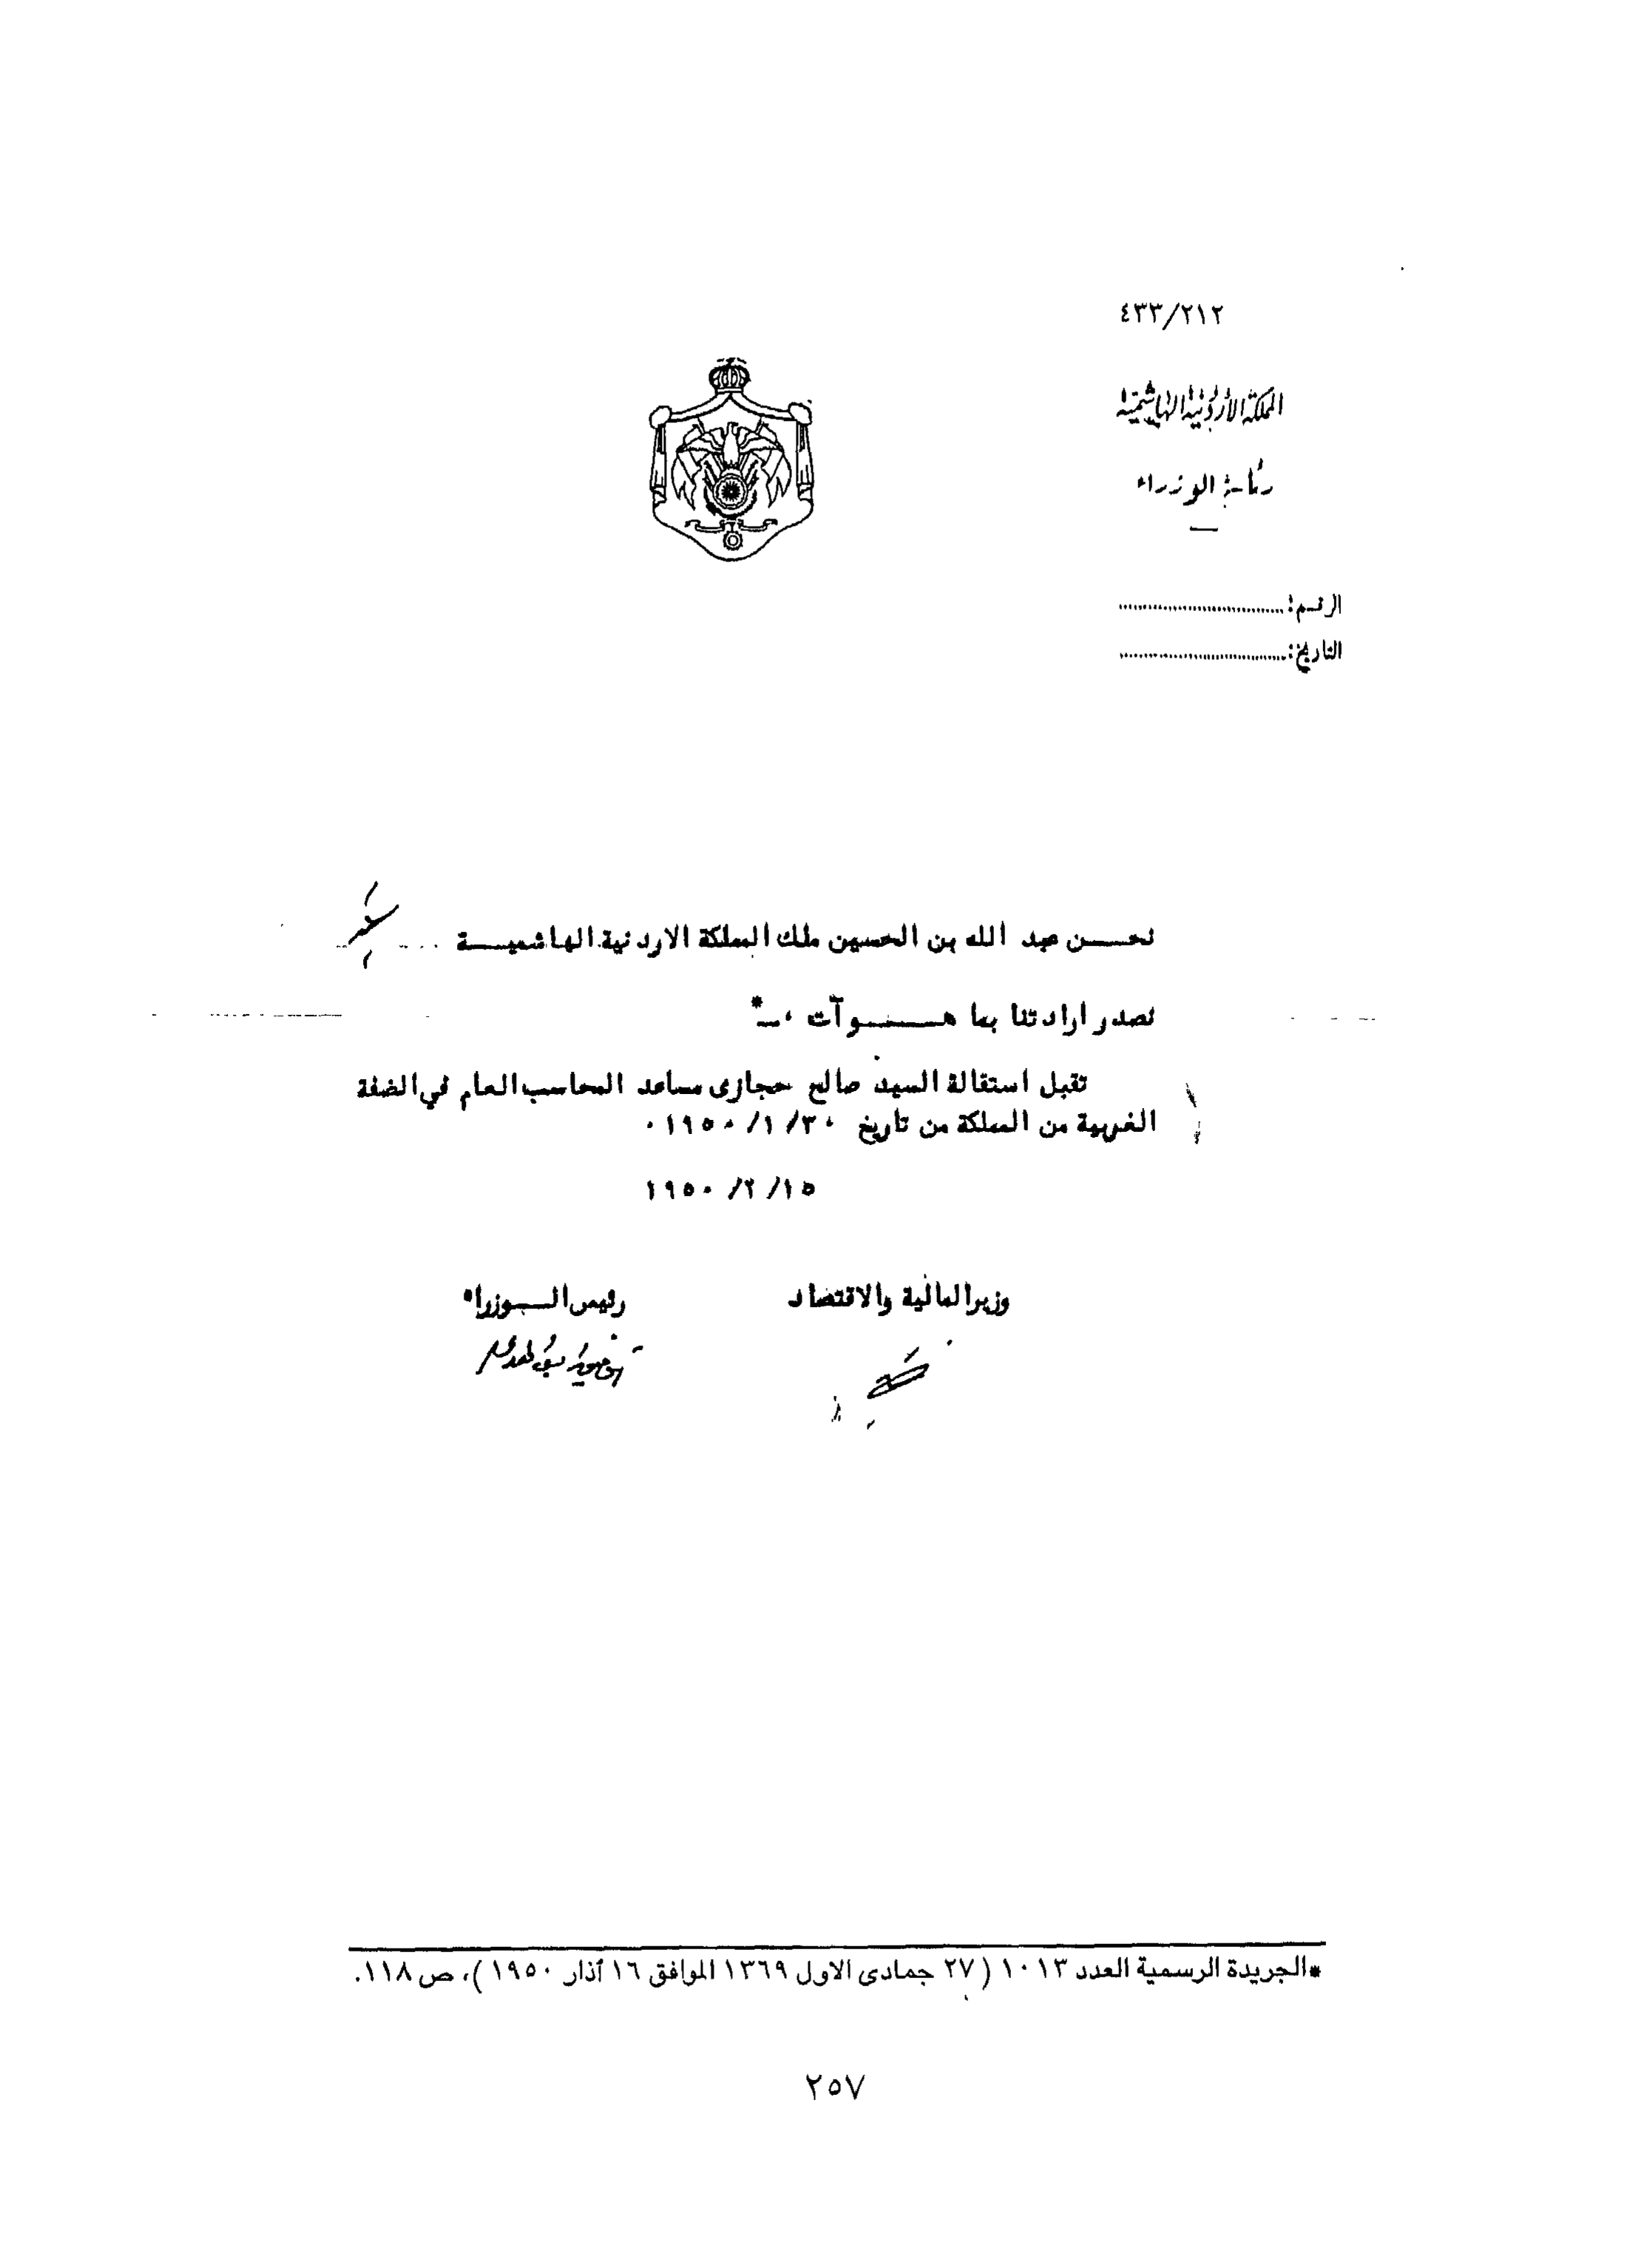 ٤٣٣/٢١٢
المملكة الأردنية الهاشمية
رئاسة الوزراء
الرقم: ................................
التاريخ: ................................
نحــــن عبد الله بن الحسين ملك المملكة الاردنية الهاشميــــة
نصدر ارادتنا بما هـــــــو آت ،ــ*
تقبل استقالة السيد صالح حجازى مساعد المحاسب العام في الضفة
الغربية من المملكة من تاريخ ١/٣٠/ ١٩٥٠ ٠
٢/١٥/ ١٩٥٠
وزير المالية والاقتصاد
رئيس الـــوزراء
*الجريدة الرسمية العدد ١٠١٣ ( ٢٧ جمادى الاول ١٣٦٩ الموافق ١٦ أذار ١٩٥٠ )، ص ١١٨.
٢٥٧